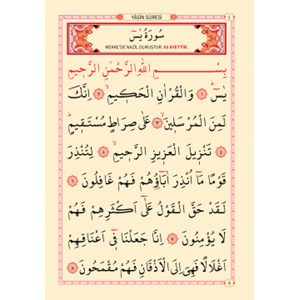 YÂSÎN SÛRESİ
سُورَةُ يٰسٓ
MEKKE'DE NAZİL OLMUŞTUR. 83 AYETTİR.
بِسْــــمِ اللّٰهِ الرَّحْمٰنِ الرَّحٖيمِ
يٰسٓ ۝١ وَالْقُرْاٰنِ الْحَكٖيمِ ۝٢ اِنَّكَ
لَمِنَ الْمُرْسَلٖينَ ۝٣ عَلٰى صِرَاطٍ مُسْتَقٖيمٍ ۝٤
تَنْزٖيلَ الْعَزٖيزِ الرَّحٖيمِ ۝٥ لِتُنْذِرَ
قَوْمًا مَٓا اُنْذِرَ اٰبَٓاؤُ۬هُمْ فَهُمْ غَافِلُونَ ۝٦
لَقَدْ حَقَّ الْقَوْلُ عَلٰٓى اَكْثَرِهِمْ فَهُمْ
لَا يُؤْمِنُونَ ۝٧ اِنَّا جَعَلْنَا فٖٓى اَعْنَاقِهِمْ
اَغْلَالًا فَهِىَ اِلَى الْاَذْقَانِ فَهُمْ مُقْمَحُونَ ۝٨